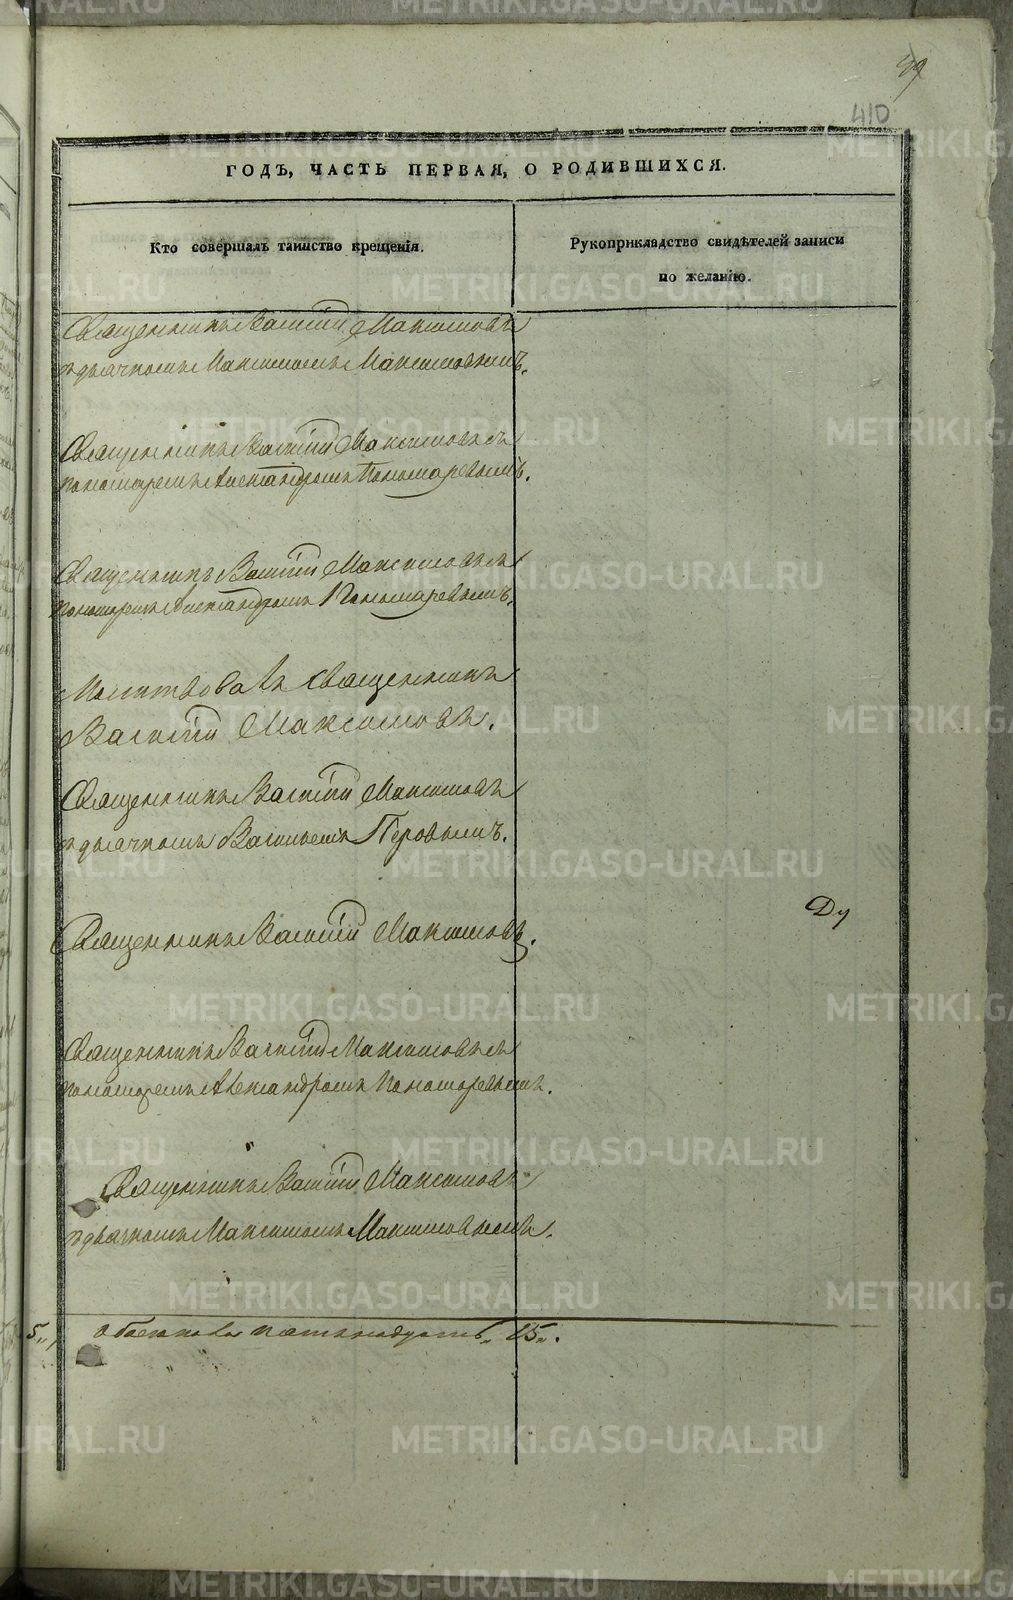 49
410
ГОДЪ, ЧАСТЬ ПЕРВАЯ, О РОДИВШИХСЯ.
Кто совершалъ таинство крещенія.
Рукоприкладство свидѣтелей записи
по желанію.
Священникъ Василій Максимовъ
съ дьячкомъ Максимомъ Максимовымъ.
Священникъ Василій Максимовъ съ
пономаремъ Александромъ Пономаревымъ.
Священникъ Василій Максимовъ съ
пономаремъ Александромъ Пономаревымъ.
Молитвовалъ Священникъ
Василій Максимовъ.
Священникъ Василій Максимовъ
съ дьячкомъ Васильемъ Перовымъ.
Ду
Священникъ Василій Максимовъ.
Священникъ Василій Максимовъ съ
пономаремъ Александромъ Пономаревымъ.
Священникъ Василій Максимовъ
съ дьячкомъ Максимомъ Максимовымъ.
5., обоего пола пятнадцать. 15.
METRIKI.GASO-URAL.RU